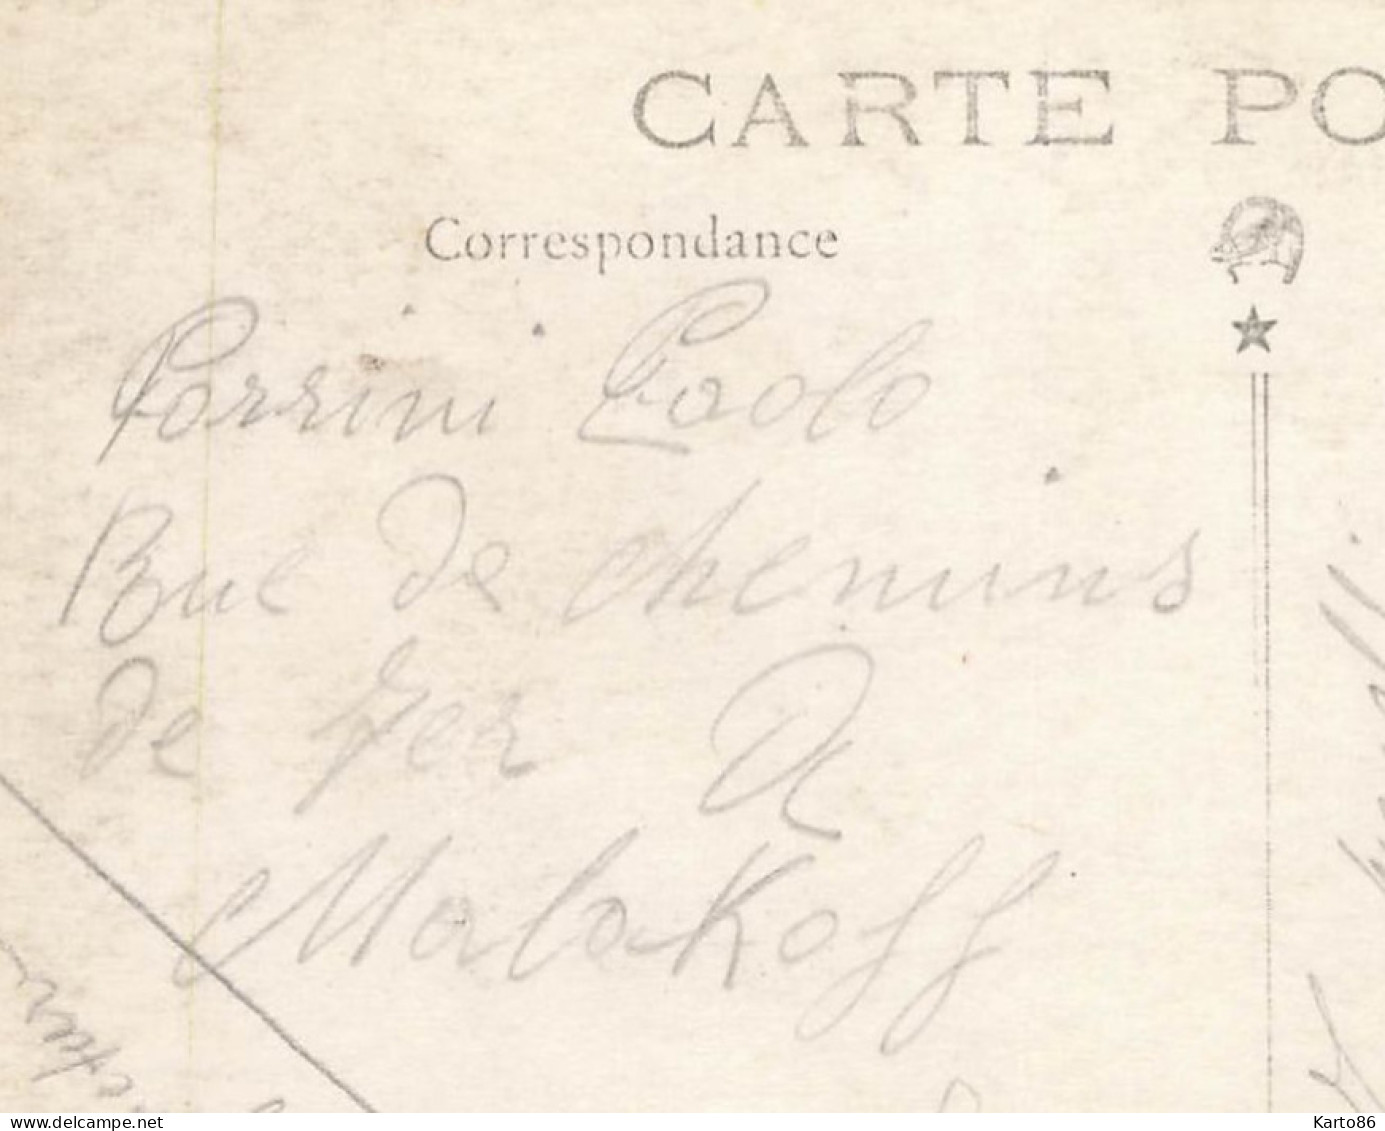 CARTE PO
Correspondance
Porrini Paolo
Rue de chemins
de fer De
Malakoff
delcampe.net
Karto86